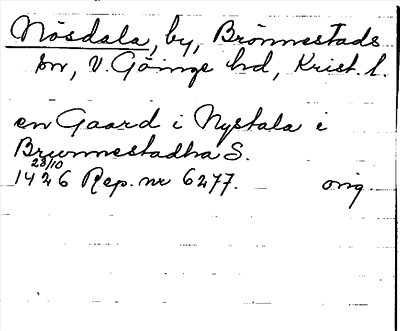 Nösdala, by, Brönnestads
sn, V. Göinge hd, Krist. l.
en Gaard i Nystala i
Brunnestadha S.
23/10
1426 Rep. nr 6277. orig.